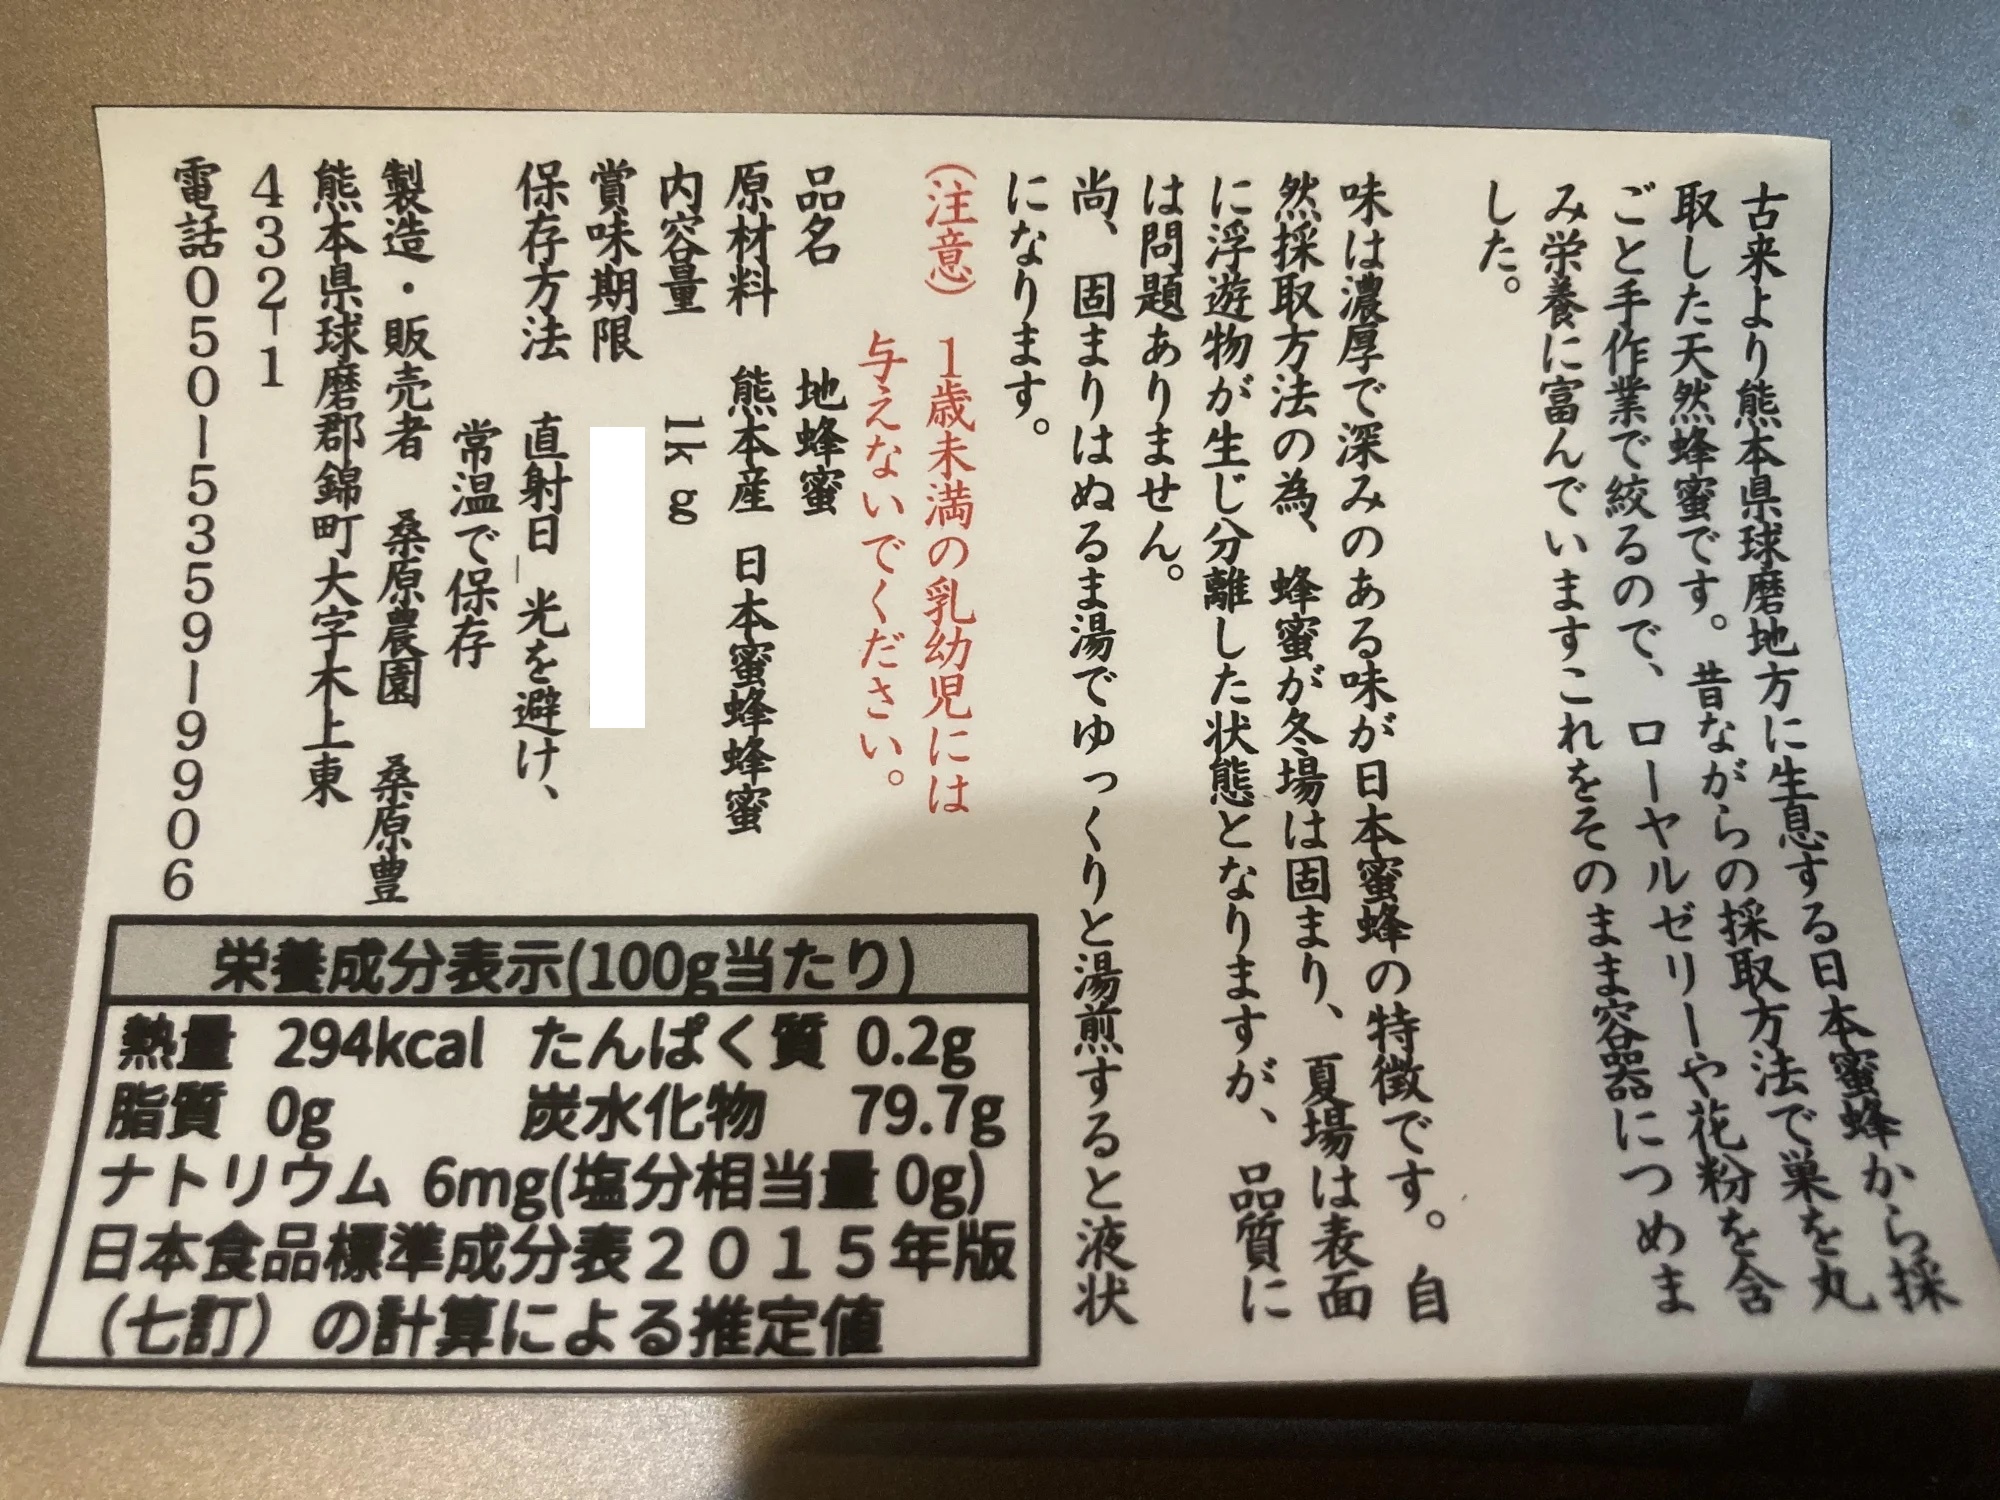 古来より熊本県球磨地方に生息する日本蜜蜂から採
取した天然蜂蜜です。昔ながらの採取方法で巣を丸
ごと手作業で絞るので、ローヤルゼリーや花粉を含
み栄養に富んでいますこれをそのまま容器につめま
した。
味は濃厚で深みのある味が日本蜜蜂の特徴です。自
然採取方法の為、蜂蜜が冬場は固まり、夏場は表面
に浮遊物が生じ分離した状態となりますが、品質に
は問題ありません。
尚、固まりはぬるま湯でゆっくりと湯煎すると液状
になります。
(注意) 1歳未満の乳幼児には
与えないでください。
品名 地蜂蜜
原材料 熊本産 日本蜜蜂蜂蜜
内容量 1kg
賞味期限
保存方法 直射日_光を避け、
常温で保存
製造・販売者 桑原農園 桑原豊
熊本県球磨郡錦町大字木上東
432-1
電話050-5359-9906
栄養成分表示(100g当たり)
熱量 294kcal たんぱく質 0.2g
脂質 0g 炭水化物 79.7g
ナトリウム 6mg(塩分相当量 0g)
日本食品標準成分表２０１５年版
（七訂）の計算による推定値